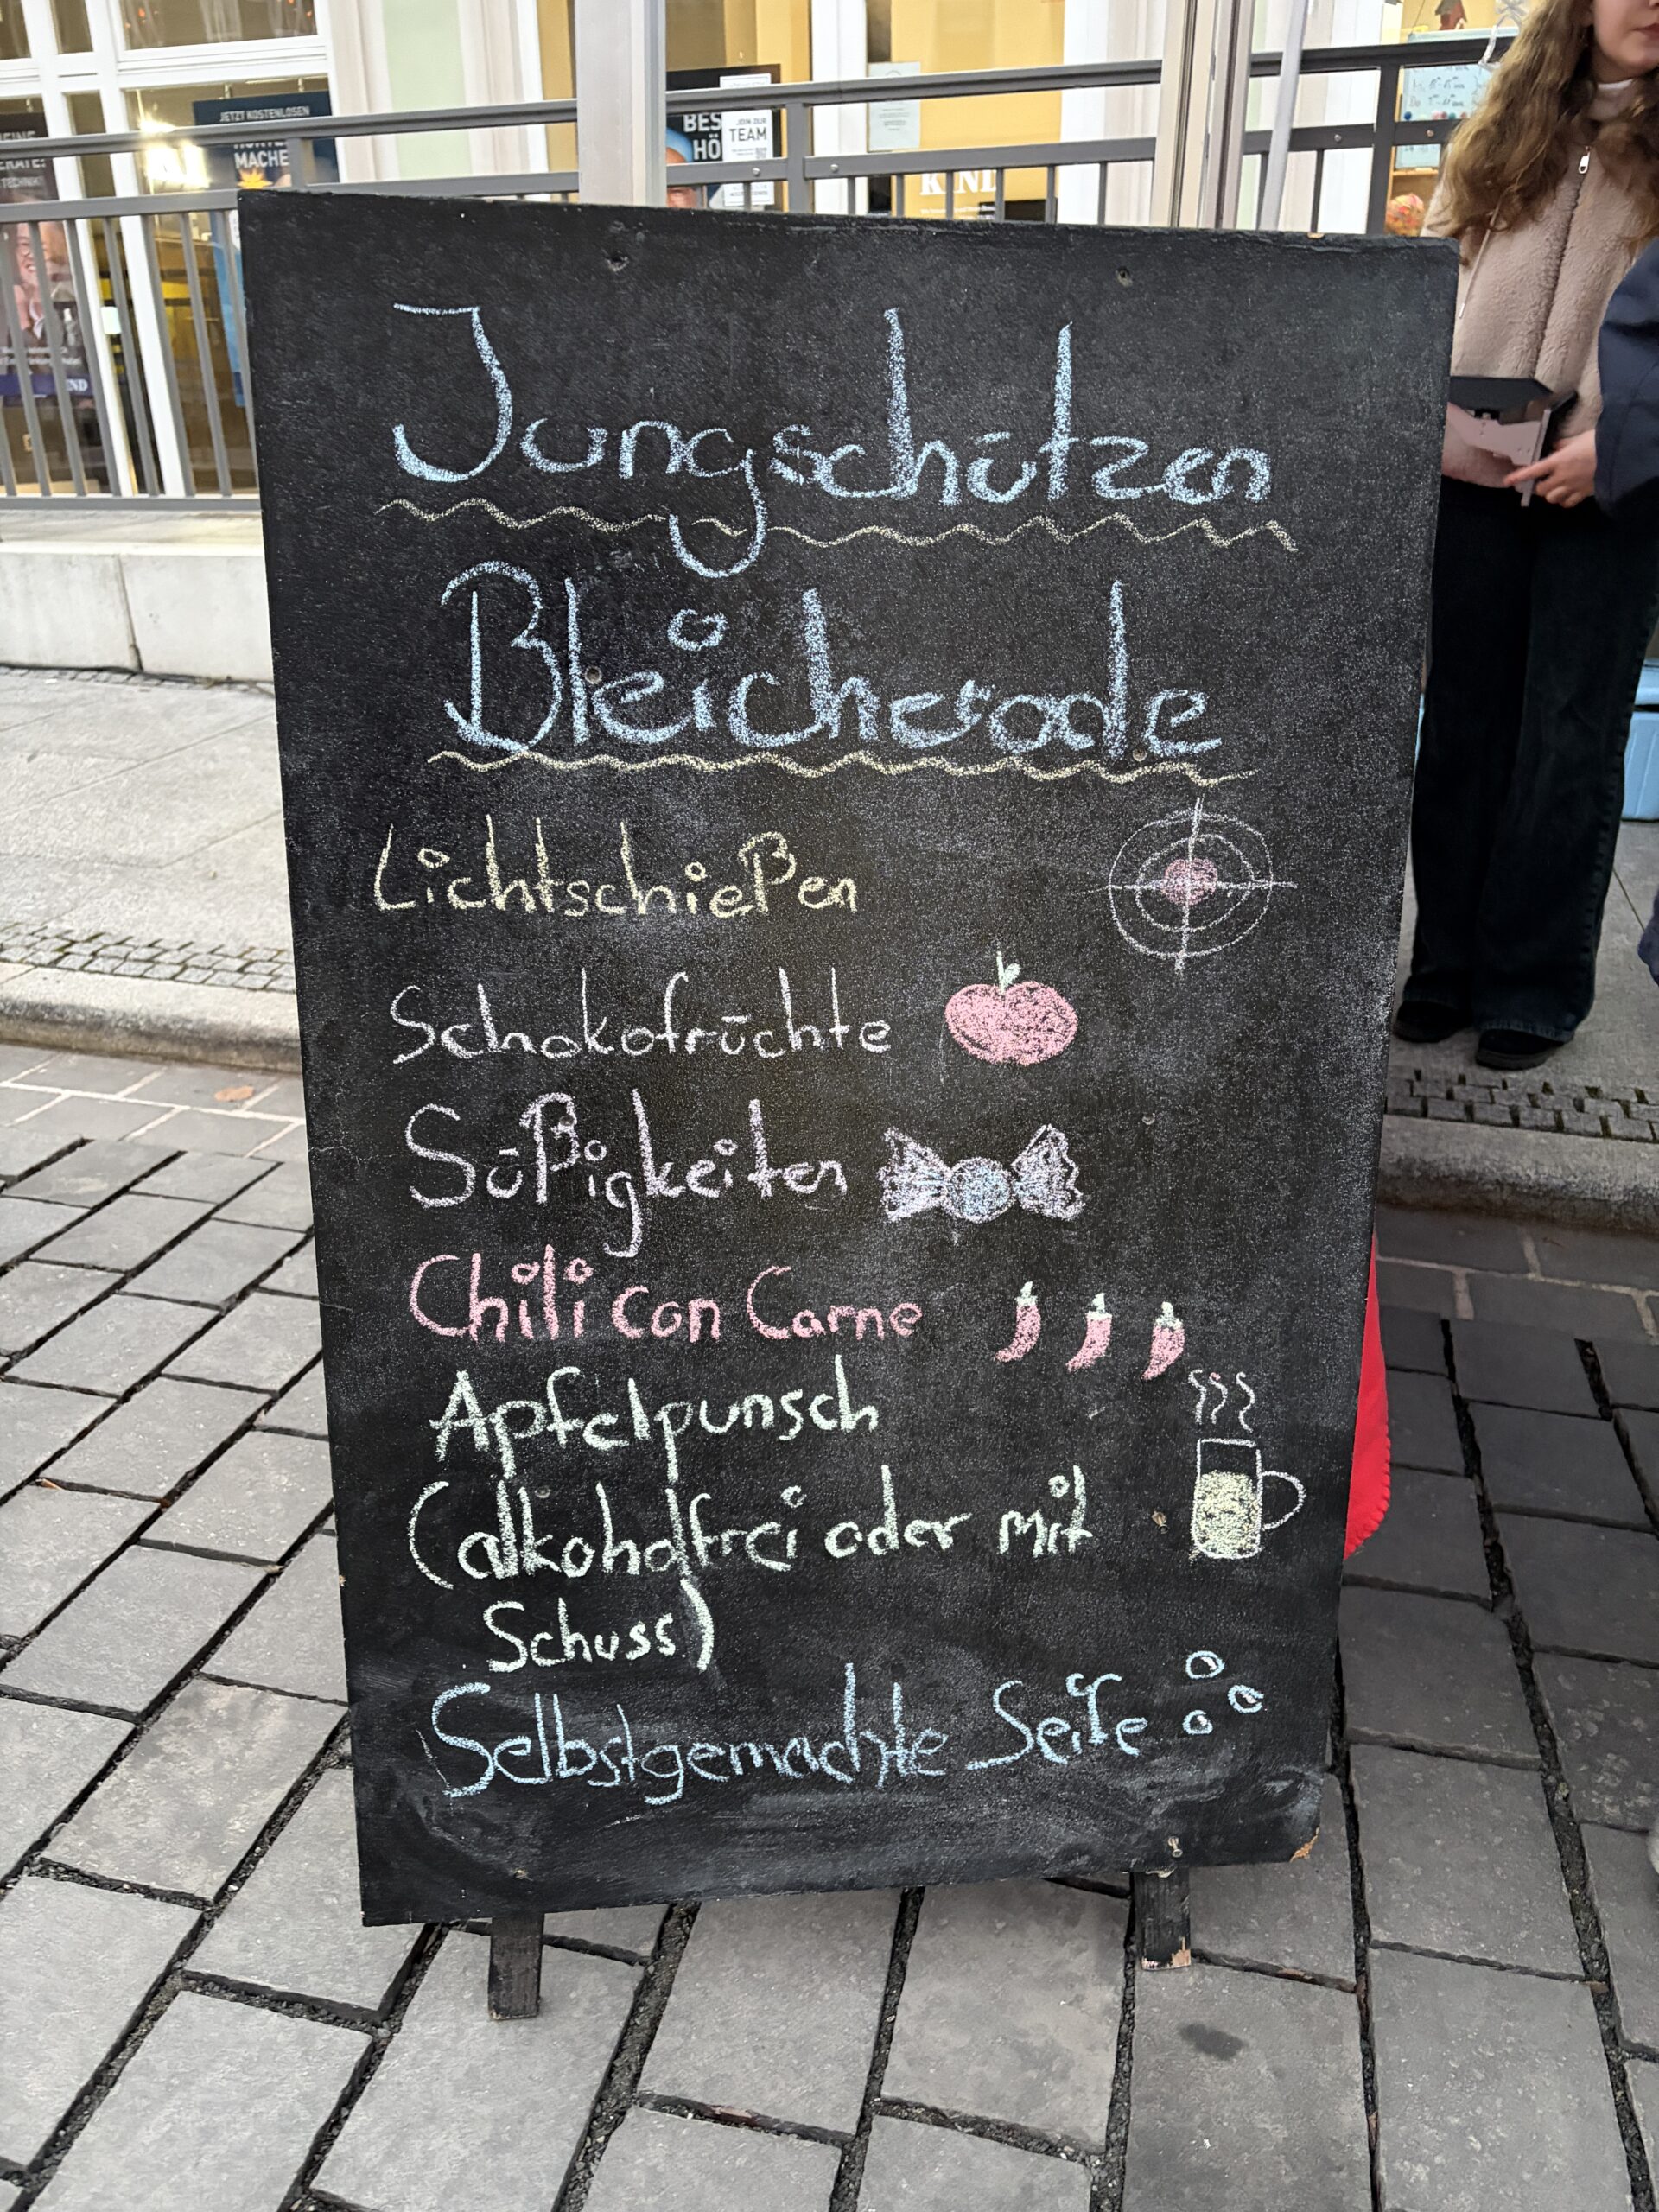 JETZT KOSTENLOSEN
MACHE
BES
HÖ
JOIN OUR
TEAM
KIND
Jungschützen
Bleicherode
Lichtschießen
Schokofrüchte
Süßigkeiten
Chili con Carne
Apfelpunsch
(alkoholfrei oder mit
Schuss)
Selbstgemachte Seife